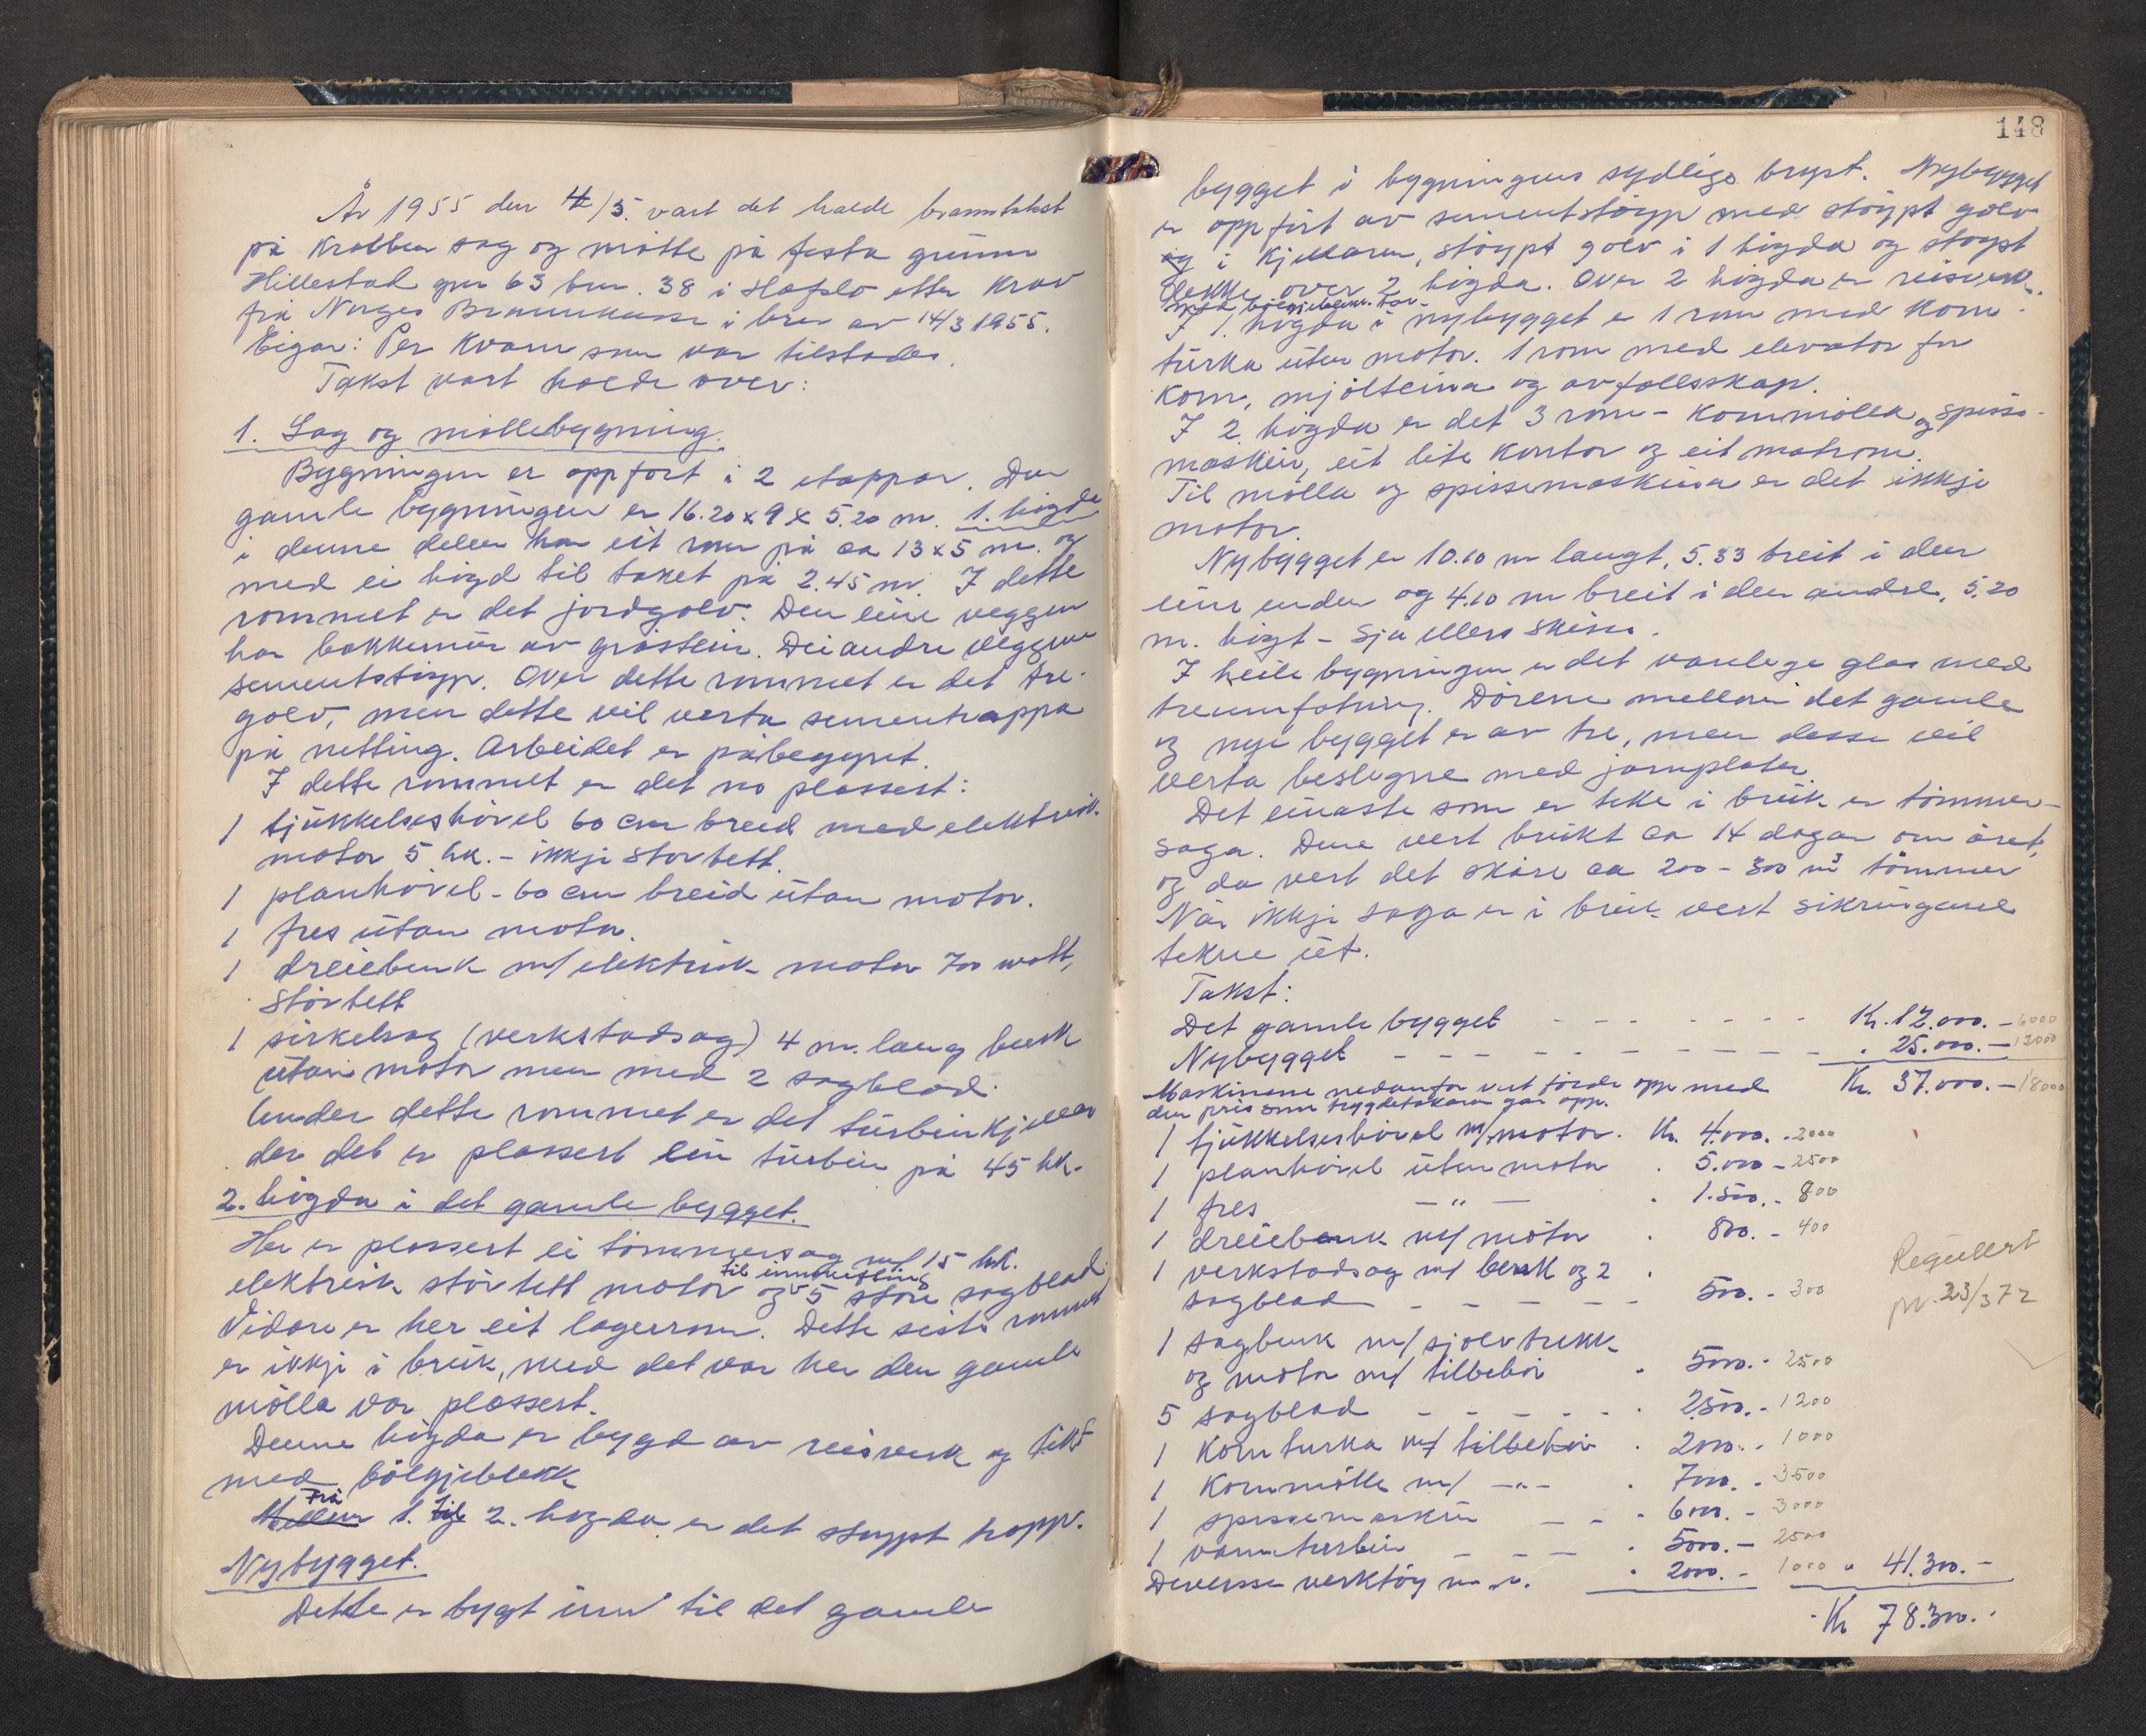 År 1955 den 4/5. vart det halde branntakst
på Kvalben sag og mølle på festa grunn
Hillestad gnr 63 bnr. 38 i Hafslo etter krav
frå Norges Brannkasse i brev av 14/3 1955.
Eigar: Per Kvam som var tilstades.
Takst vart halde over:
1. Sag og møllebygning.
Bygningen er oppført i 2 etappar. Den
gamle bygningen er 16.20 x 9 x 5.20 m. 1. høgda
i denne delen har eit rom på ca 13 x 5 m. og
med ei høgd til taket på 2.45 m. I dette
rommet er det jordgolv. Den eine veggen
har bakkemur av gråstein. Dei andre veggene
sementstøyp. Over dette rommet er det tre-
golv, men dette vil verta sementrappa
på netting. Arbeidet er påbegynt.
I dette rommet er det no plassert:
1 tjukkelseshøvel 60 cm breid med elektrisk
motor 5 hk. - ikkje støvtett.
1 planhøvel - 60 cm breid utan motor.
1 fres utan motor.
1 dreiebenk m/ elektrisk motor 700 watt,
støvtett
1 sirkelsag (verkstadsag) 4 m. lang benk
utan motor men med 2 sagblad.
Under dette rommet er det turbinkjellar
der det er plassert ein turbin på 45 hk.
2. høgda i det gamle bygget.
Her er plassert ei tømmersag m/ 15 hk.
til innsetting
elektrisk støvtett motor og 5 store sagblad.
Vidare er her eit lagerrom. Dette siste rommet
er ikkje i bruk, med det var her den gamle
mølla var plassert.
Denne høgda er bygd av reisverk og tekt
med bølgjeblekk
Frå
Mellom 1. til 2. høgda er det støypt trapp.
Nybygget.
Dette er bygt inn til det gamle
148
bygget i bygningens sydlige bryst. Nybygget
er oppført av sementstøyp med støypt golv
og i kjellaren, støypt golv i 1 høgda og støypt
dekke over 2 høgda. Over 2 høgda er reisverk.
med bølgjeblekk. tak.
I 1. høgda i nybygget er 1 rom med korn-
turka uten motor. 1 rom med elevator for
korn, mjølteina og avfallsskap.
I 2. høgda er det 3 rom - kornmølla og spisse-
maskin, eit lite kontor og eit matrom.
Til mølla og spissemaskina er det ikkje
motor.
Nybygget er 10.10 m langt, 5.33 breit i den
eine enden og 4.10 m breit i den andre, 5.20
m. høgt - Sjå ellers skisse.
I heile bygningen er det vanlege glas med
treinnfatning. Dørene mellom det gamle
og nye bygget er av tre, men desse vil
verta beslegne med jarnplater.
Det einaste som er teke i bruk er tømmer-
saga. Dene vert brukt ca 14 dagar om året,
og da vert det skåre ca 200 - 300 m³ tømmer
Når ikkje saga er i bruk vert sikringane
tekne ut.
Takst:
Det gamle bygget - - - - - - - Kr. 12.000. - 6000
Nybygget - - - - - - - - - - " 25.000. - 12000
Maskinene nedanfor vert førde opp med Kr. 37.000. - 18000
den pris som trygdetakaren gav opp.
1 tjukkelseshøvel m/ motor. Kr. 4.000. - 2000
1 planhøvel uten motor " 5.000 - 2500
1 fres - " - " 1.500. - 800
1 dreiebenk m/ motor " 800. - 400
1 verkstadsag m/ benk og 2 "
sagblad - - - - - 500. - 300
1 sagbenk m/ sjølvtrekk
og motor m/ tilbehør " 5000. - 2500
5 sagblad - - - - - " 2500. - 1200
1 Kornturka m/ tilbehør " 2000. - 1000
1 Kornmølle m/ - " - " 7000. - 3500
1 spissemaskin - - " 6000. - 3000
1 vannturbin - - - " 5000. - 2500
Diversse verktøy m.v. " 2000. - 1000 " 41.300. -
Kr 78.300. -
Regulert
pr. 23/3 72